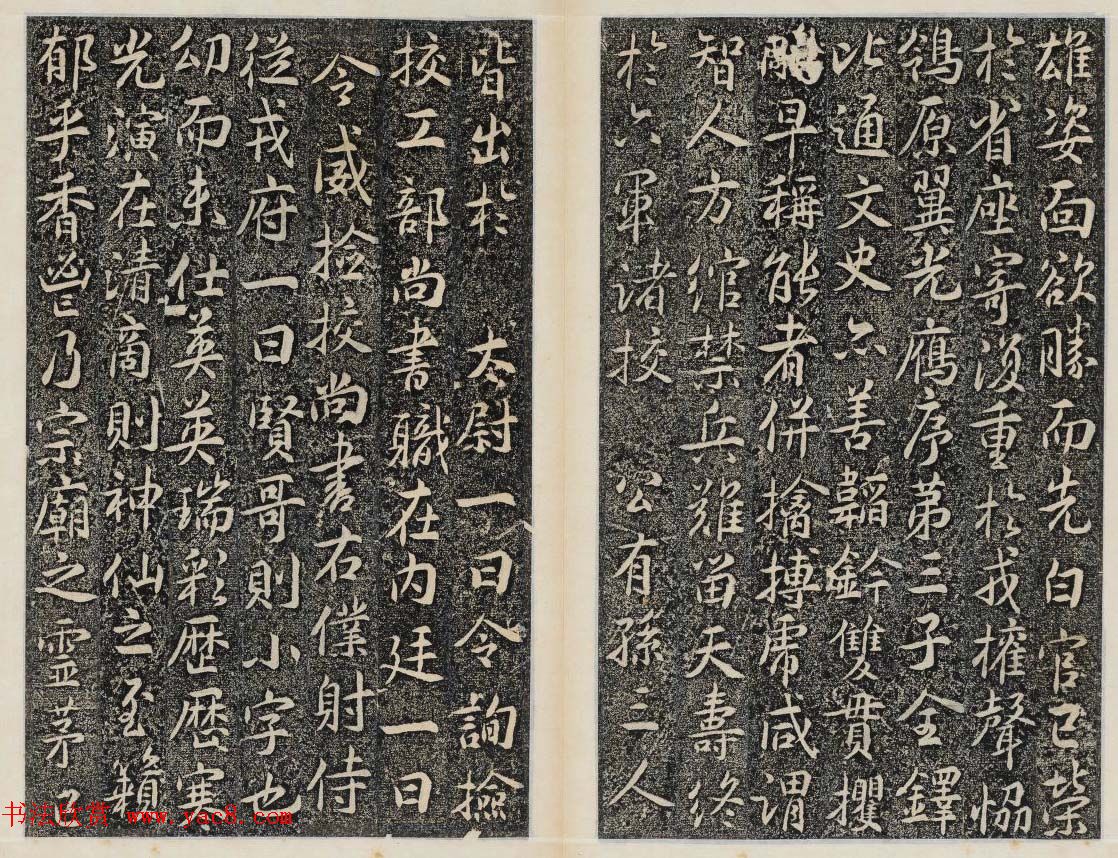 雄姿面欲勝而先白官已榮
於省座寄復重於戎擁聲恊
鴒原翼光鴈序第三子全鐸
比通文史亦善韜鈐雙貫攫
鵰早稱能者併擒搏虎咸謂
智人方綰禁兵難留天壽終
於六軍諸校 公有孫三人
皆出於 太尉一曰令詢撿
校工部尚書職在内廷一曰
令威撿校尚書右僕射侍
從戎府一曰賢哥則小字也
幼而未仕英英瑞彩歴歴寒
光演在清商則神仙之至籟
郁乎香鬯乃宗廟之靈茅
书法欣赏 www.yac8.com